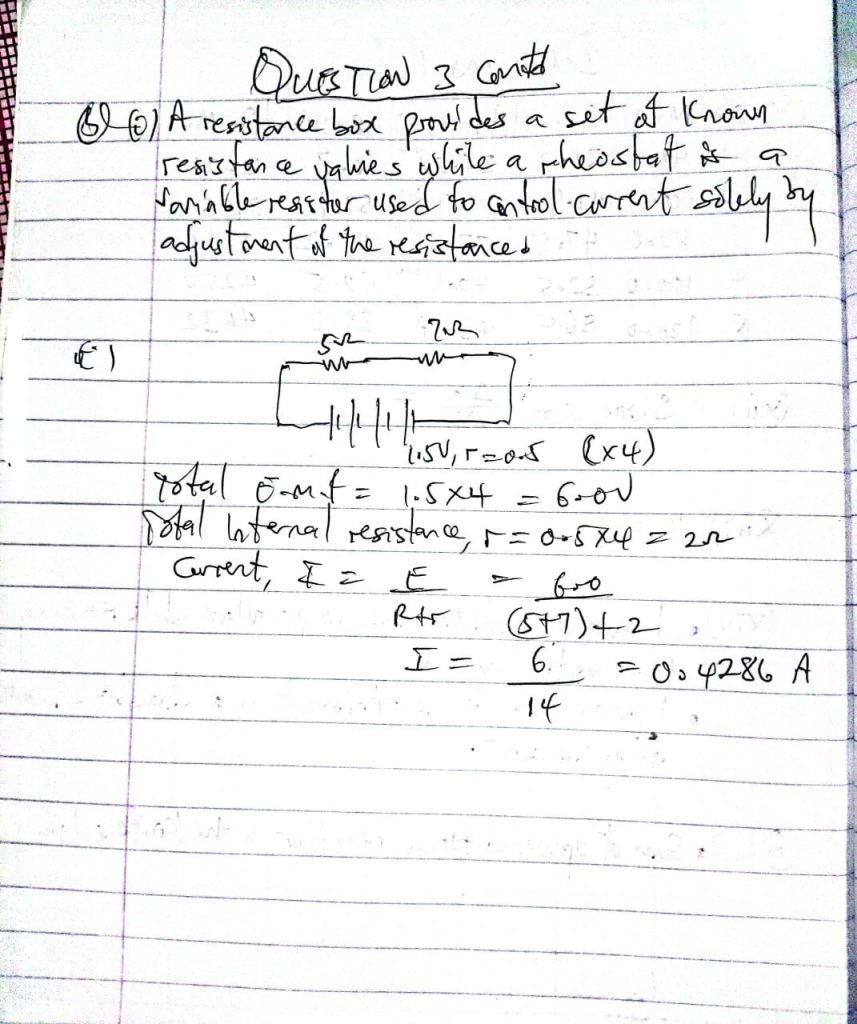 QUESTION 3 Contd
(b) (i) A resistance box provides a set of known
resistance values while a rheostat is a
variable resistor used to control current solely by
adjustment of the resistance.
5Ω 7Ω
1.5V, r=0.5 (x4)
Total e.m.f = 1.5x4 = 6.0V
Total Internal resistance, r = 0.5x4 = 2Ω
Current, I = E/R+r = 6.0/(5+7)+2
I = 6/14 = 0.4286 A